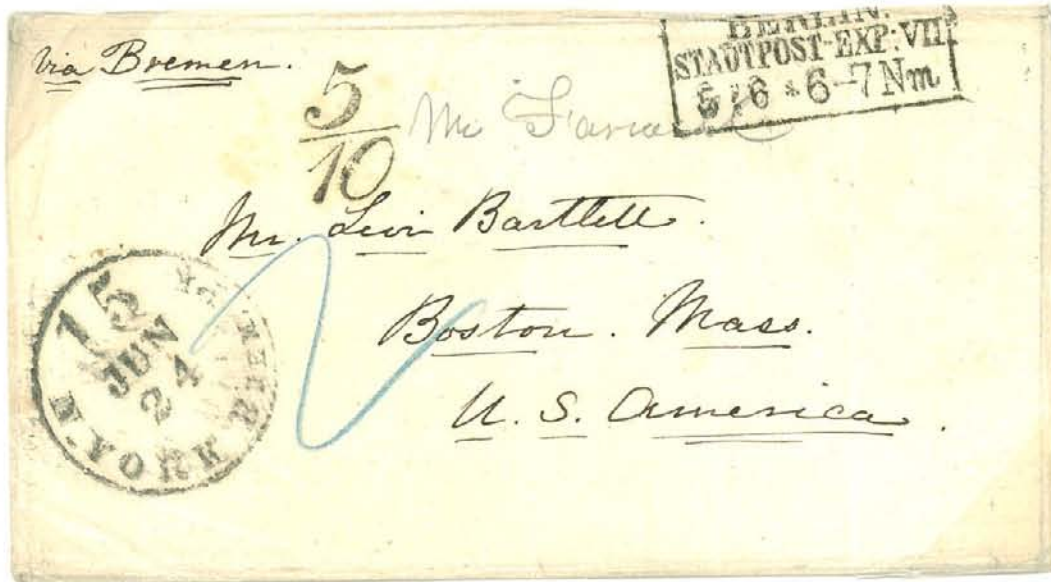 via Bremen.
BERLIN.
STADTPOST-EXP: VII.
6 * 6-7 Nm
5
10
Mr. Levi Bartlett.
Boston. Mass.
U. S. America.
15
JUN
24
N. YORK BREM. PK